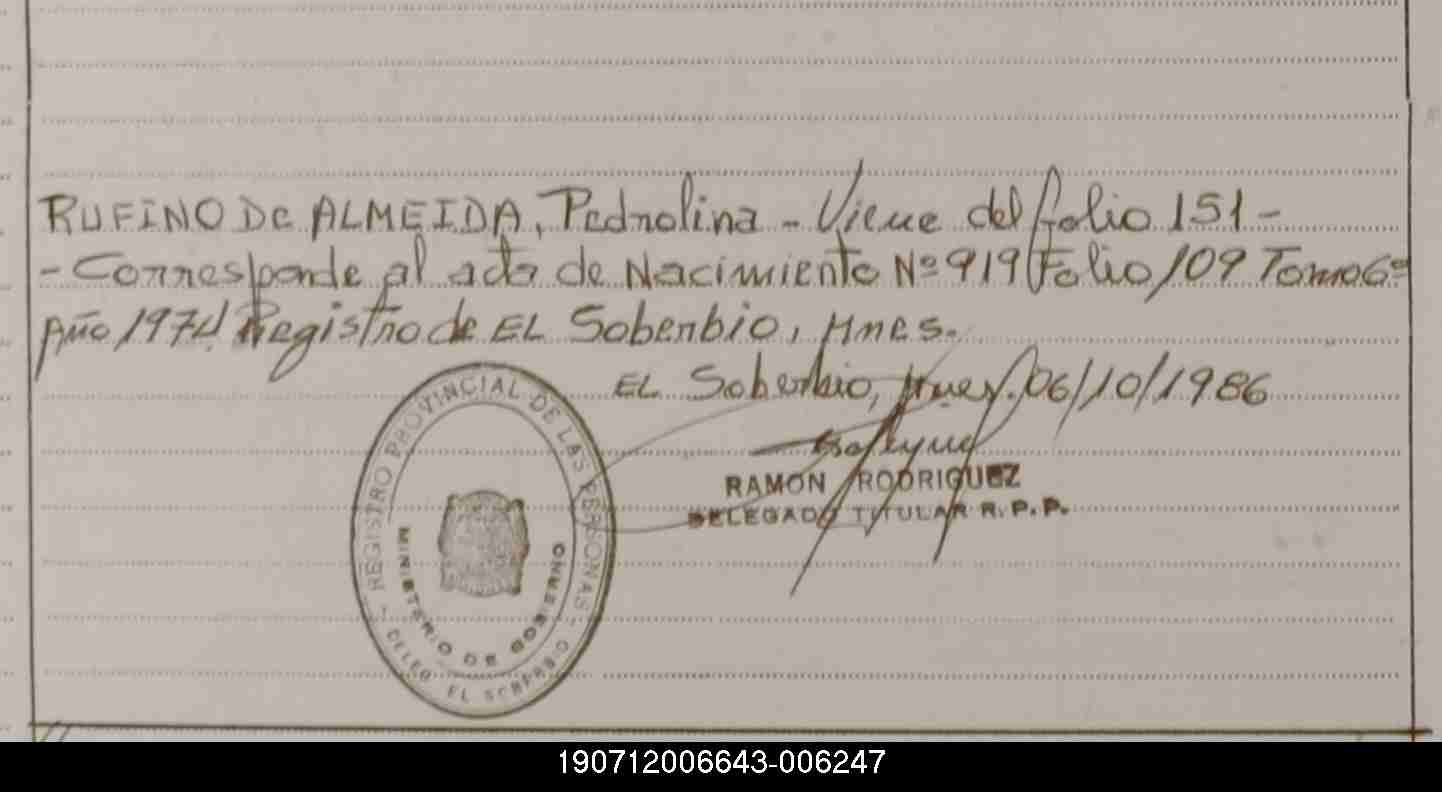 RUFINO DE ALMEIDA, Pedrolina - Viene del folio 151 -
- Corresponde al acta de Nacimiento Nº 919 Folio 109 Tomo 6º
Año 1974 Registro de EL Soberbio, Mnes.
EL Soberbio, Mnes. 06/10/1986
RAMON RODRIGUEZ
DELEGADO TITULAR R.P.P.
- REGISTRO PROVINCIAL DE LAS PERSONAS -
MINISTERIO DE GOBIERNO
DELEG. EL SOBERBIO
190712006643-006247